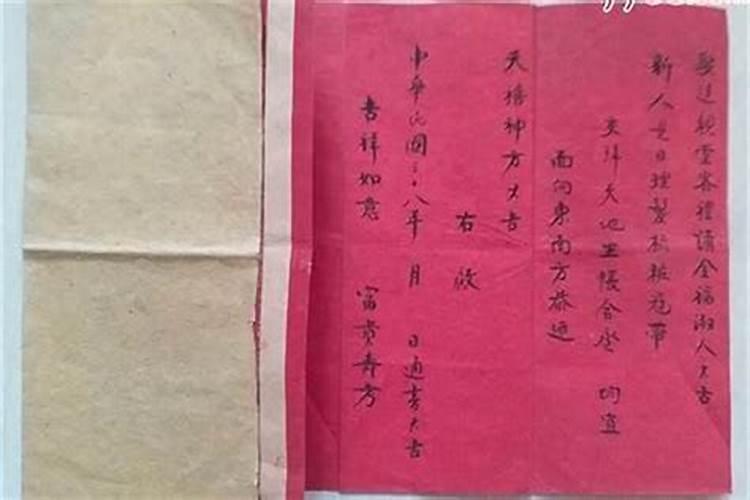 娶送親堂客禮請全福湘人大吉
新人是日理髮梳粧冠帶
交拜天地坐帳合巹 均宜
面向東南方恭迎
天搭神方大吉
右啟
中華民國三十八年 月 日通書大吉
吉祥如意 富貴壽方